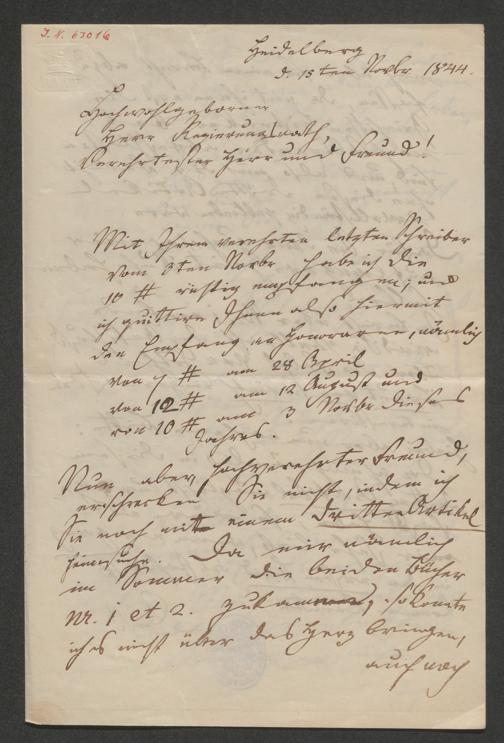 J. N. 63016
Heidelberg
d. 15ten Novbr 1844.
Hochwohlgeborner
Herr Regierungsrath,
Verehrtester Herr und Freund!
Mit Ihrem verehrten letzten Schreiben
vom 3ten Novbr habe ich die
10 # richtig empfangen; und
ich quittire Ihnen also hiermit
den Empfang an Honoraren, nämlich
von 7 # am 28 April
von 12 # am 12 August und
von 10 # am 3 Novbr dieses
Jahres.
Nun aber, hochverehrter Freund,
erschrecken Sie nicht, indem ich
Sie noch mit einem dritten Artikel
heimsuche. Da mir nämlich
im Sommer die beiden Bücher
Nr. 1 et 2. zukamen, so konnte
ich es nicht über das Herz bringen,
auch noch